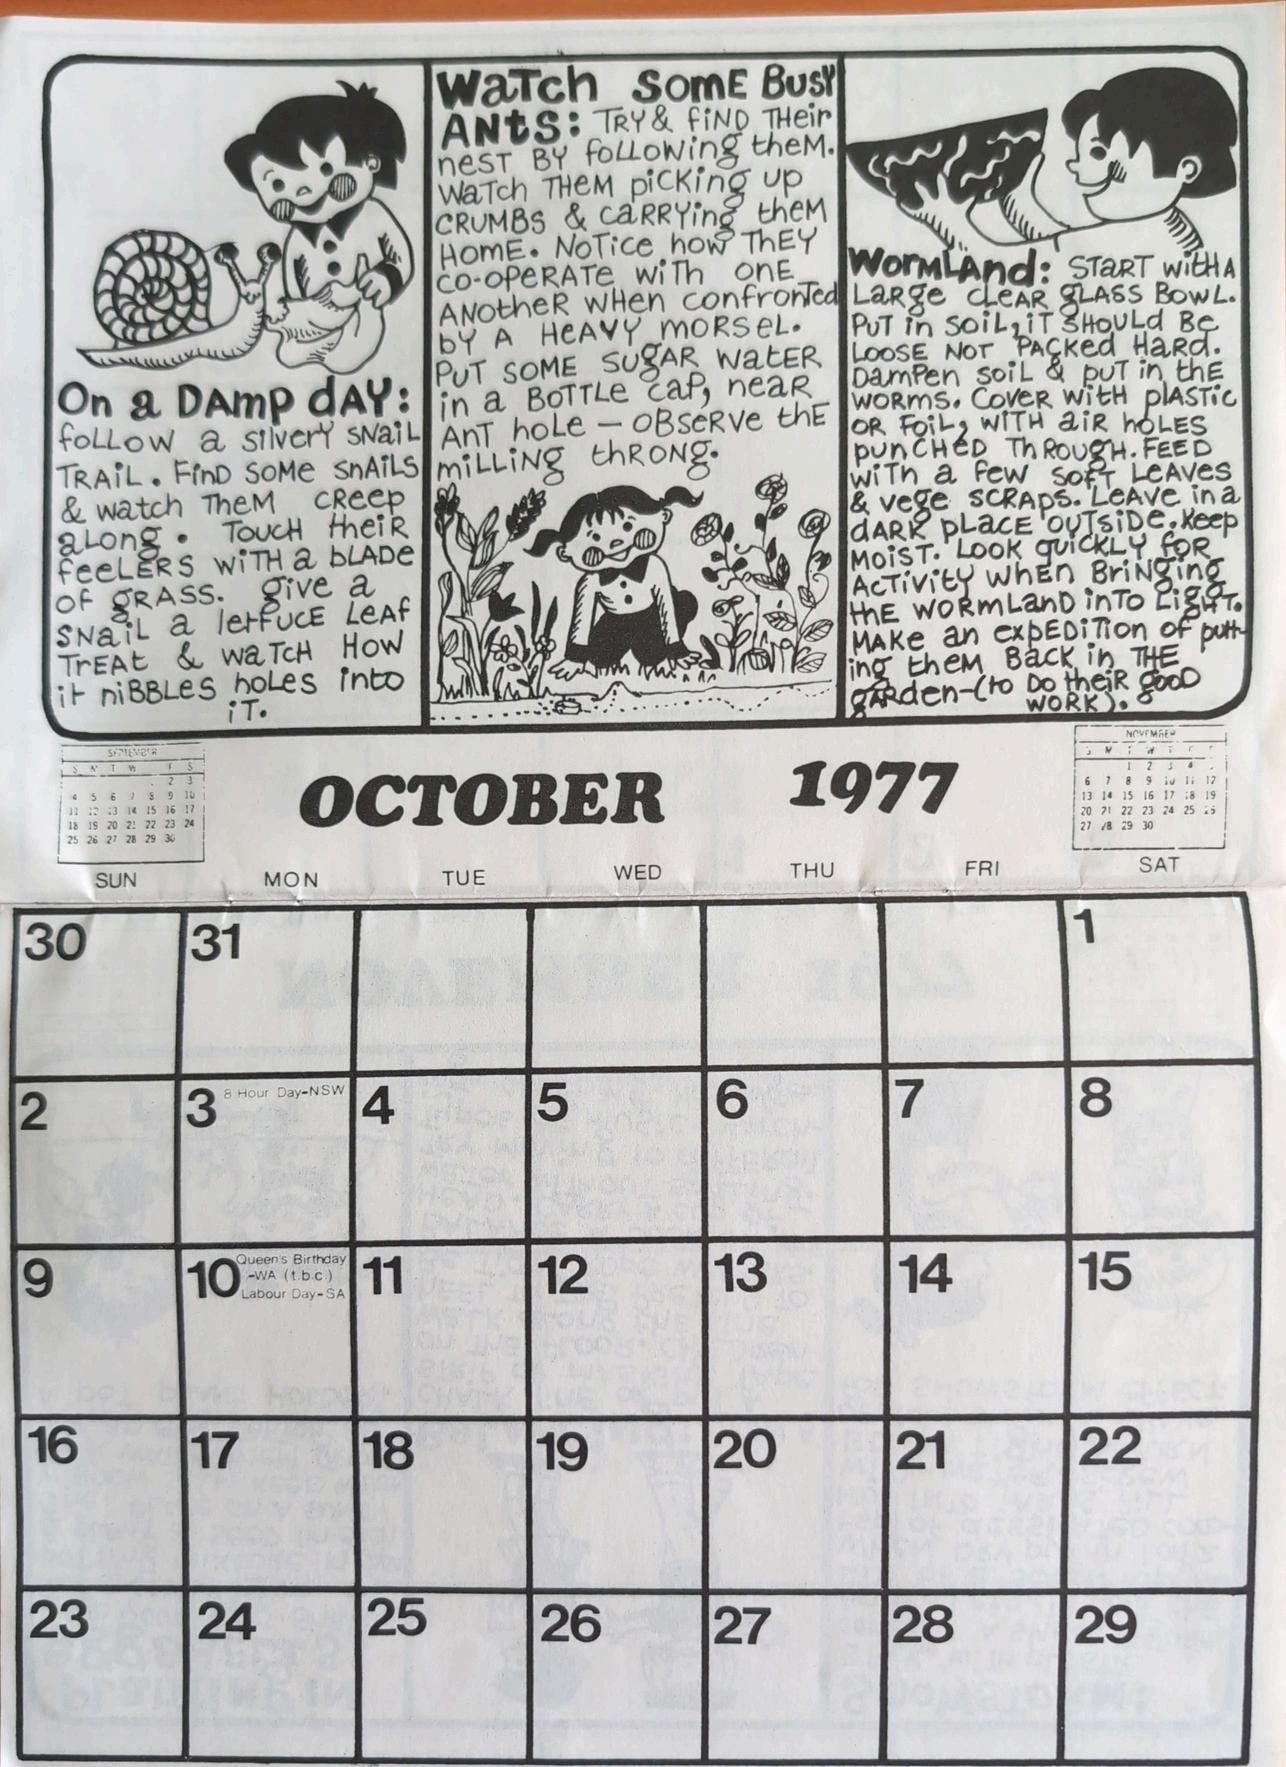 On a DAmp dAY:
foLLOW a silverY SNaiL
TRAiL. FinD SOMe SnAiLS
& watch THeM creep
aLong. TOUCH theiR
feeLERS WiTH a bLADE
OF gRASS. give a
SNaiL a letTuCE LEAF
TrEAt & WaTCH HOW
it niBBLeS holes into
iT.
WaTCh SomE BusY
ANtS: TRY & FiND THeir
nEST BY foLLOWing theM.
WaTcH THEM piCKing up
CRUMBS & CaRRYing theM
HOME. NoTice how THEY
CO-OPERATE WiTh onE
ANotheR WHen confronTed
bY A HEAVY morseL.
PuT SOME SUgAR WateR
in a BOTTLe Cap, neaR
AnT hoLe — OBSeRve thE
miLLiNg thRONg.
WormLAnd: START WitH A
LaRge cLeAR gLASS BowL.
PuT in SoiL, iT SHOULd Be
LOOSE NOT PACKed HaRd.
DAMpen SoiL & puT in thE
WORMS. CoveR WiTH pLASTiC
OR FoiL, WiTH aiR hoLES
punCHed THROUGH. FEED
WiTh a few SOfT LeAVES
& vege SCRAPS. LeAve in a
dARK pLACE ouTSide. Keep
MoiST. LOOK quicKLY FOR
ACTiviTY WHEN BRiNgiNg
thE WORMLAND inTO LigHT.
MAKE an expEDiTiON of putt-
ing theM BACK in THE
gARden-(to Do theiR gooD
WORK).
SEPTEMBER
S M T W F S
2 3
4 5 6 7 8 9 10
11 12 13 14 15 16 17
18 19 20 21 22 23 24
25 26 27 28 29 30
OCTOBER 1977
NOVEMBER
S M T W T F S
1 2 3 4
6 7 8 9 10 11 12
13 14 15 16 17 18 19
20 21 22 23 24 25 26
27 28 29 30
SUN MON TUE WED THU FRI SAT
30 31 1
2 3 8 Hour Day-NSW 4 5 6 7 8
9 10 Queen's Birthday
-WA (t.b.c.)
Labour Day-SA
11 12 13 14 15
16 17 18 19 20 21 22
23 24 25 26 27 28 29